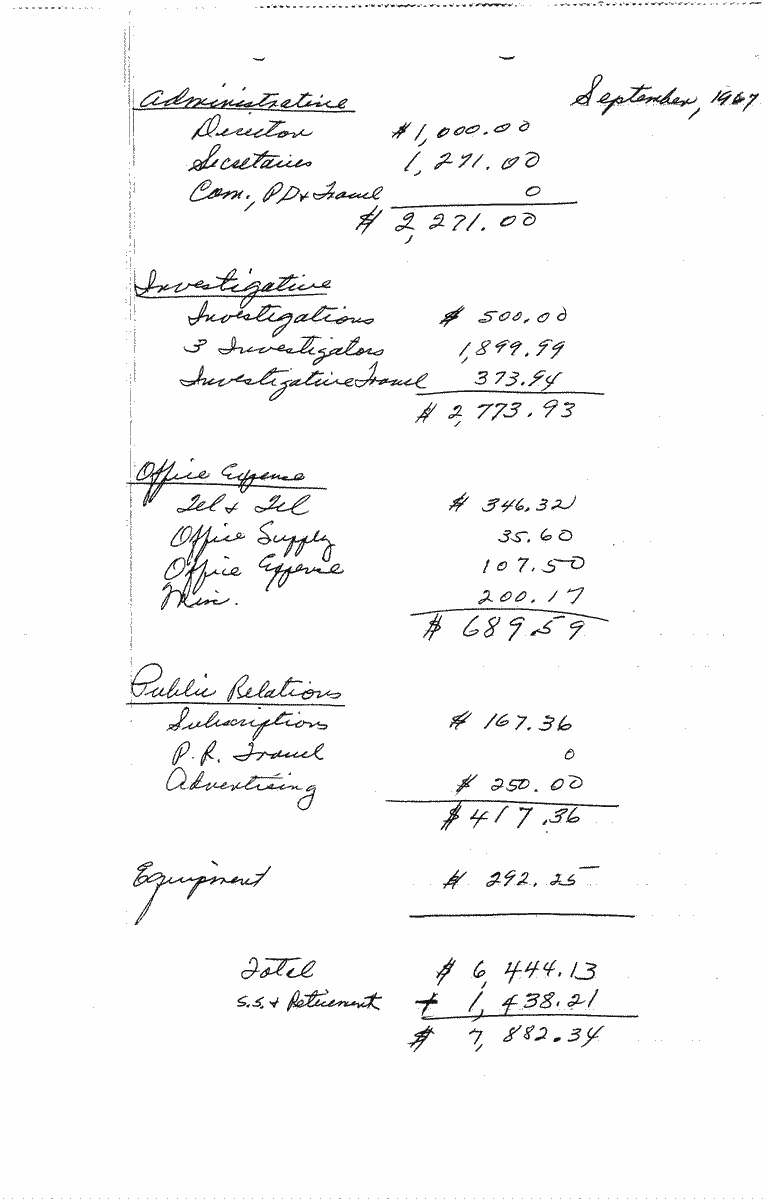 September, 1967
Administrative
Director $1,000.00
Secretaries 1,271.00
Com., PD & Travel 0
$ 2,271.00
Investigative
Investigations $ 500.00
3 Investigators 1,899.99
Investigative Travel 373.94
$ 2,773.93
Office Expense
Tel & Tel $ 346.32
Office Supply 35.60
Office Expense 107.50
200.17
$ 689.59
Public Relations
Subscriptions $ 167.36
P.R. Travel 0
Advertising $ 250.00
$ 417.36
Equipment $ 292.25
Total $ 6,444.13
S.S. & Retirement + 1,438.21
$ 7,882.34